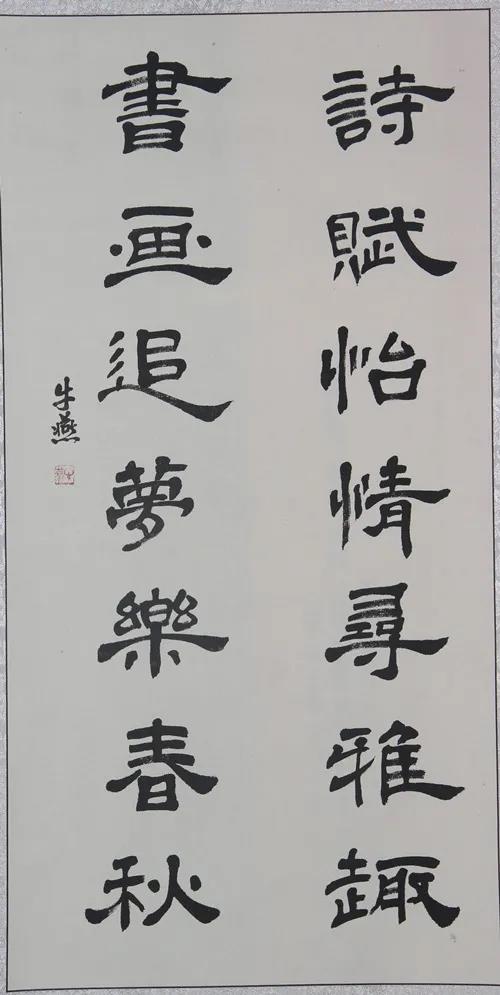 詩賦怡情尋雅趣
書画追夢樂春秋
牛燕